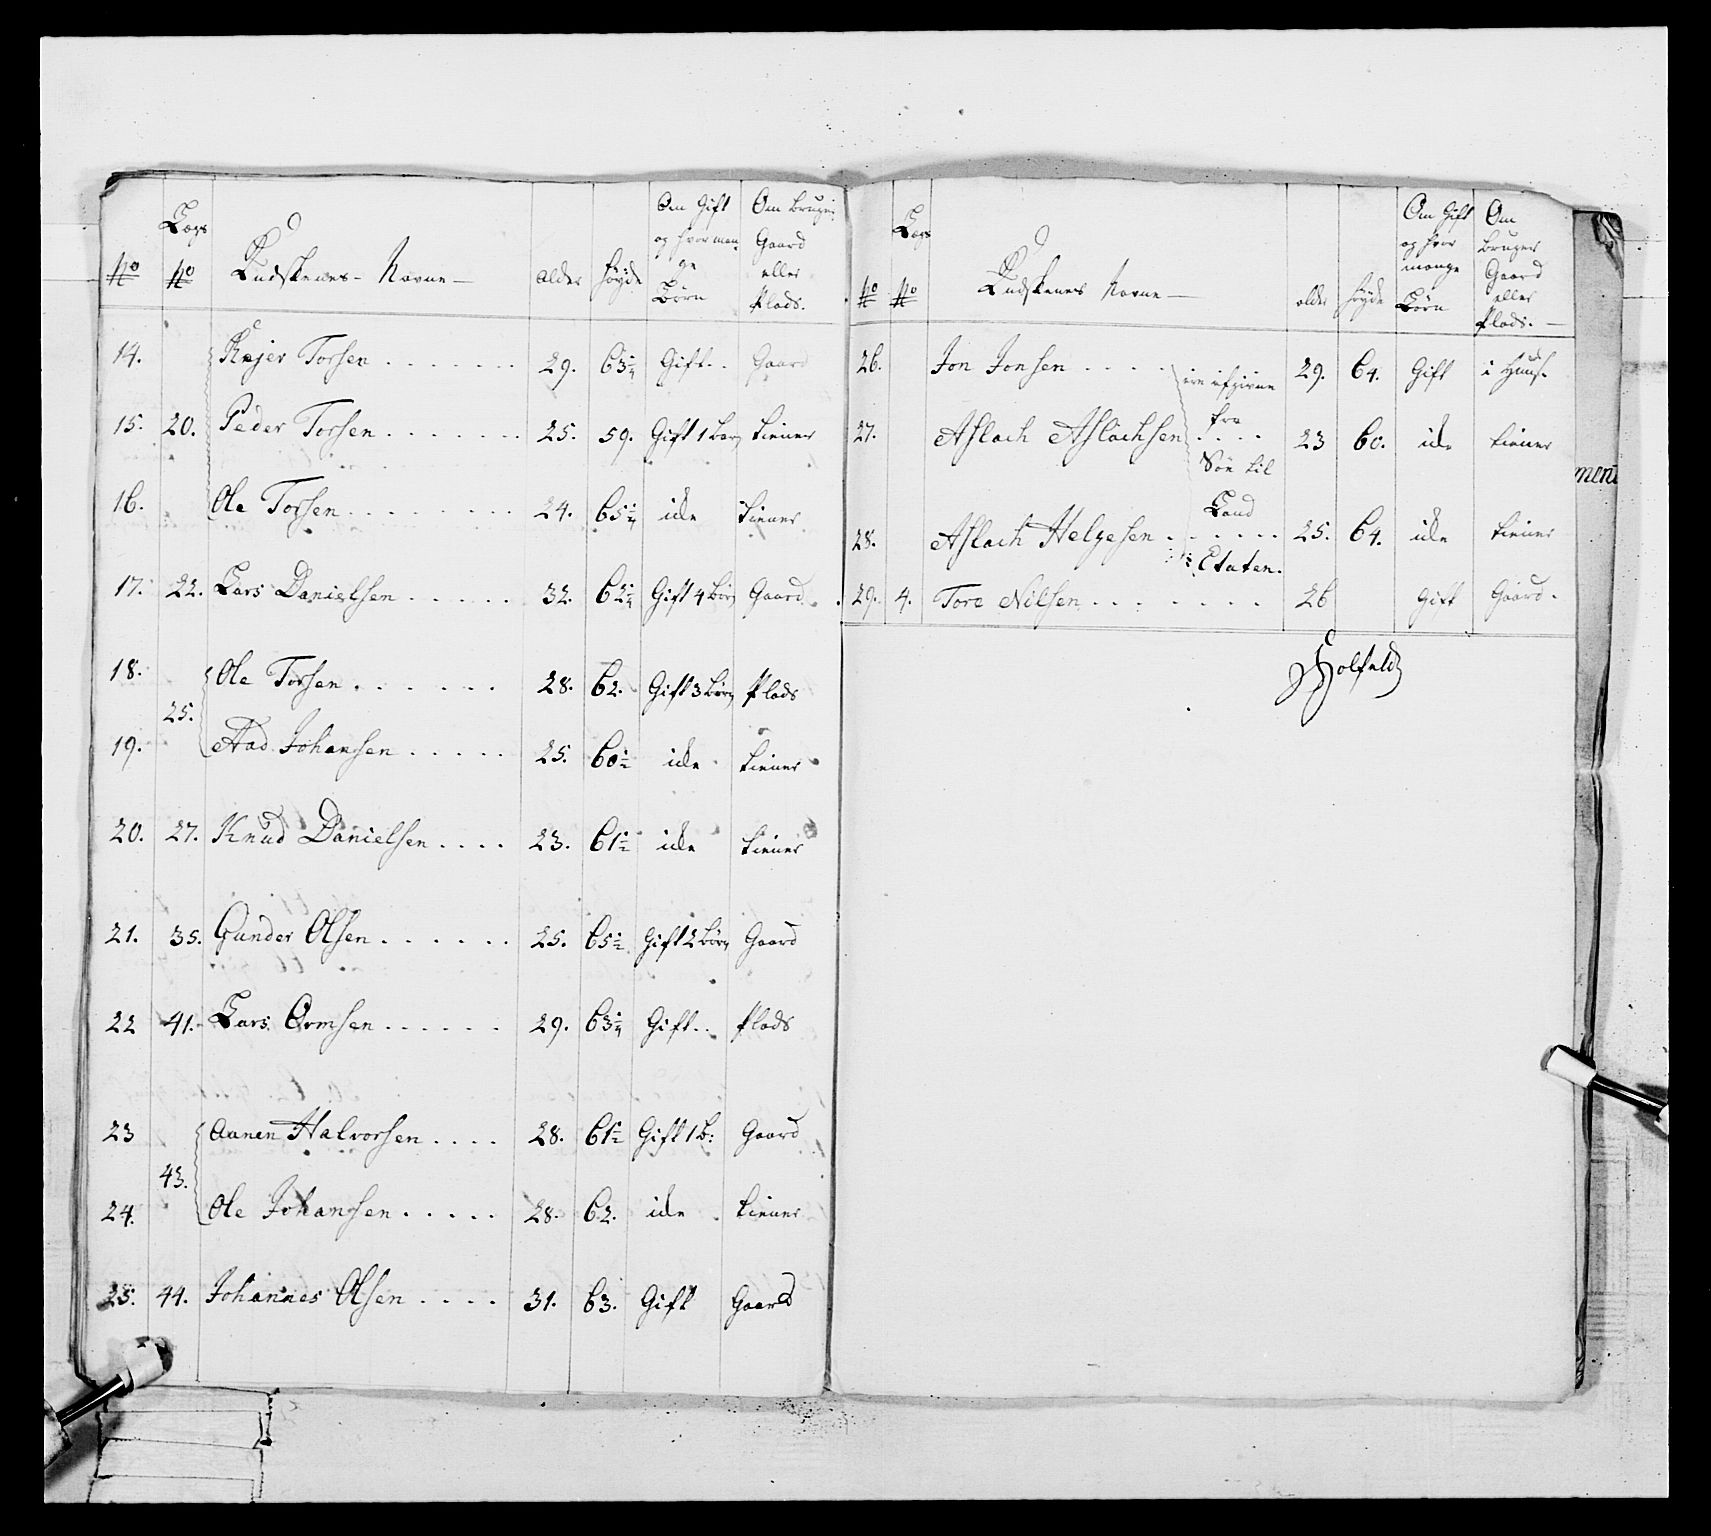 No
Lægs No
Kudskenes Navne
alder
høyde
Om Gift og hvor mange Børn
Om bruger Gaard eller Plads.
14. Rejer Torsen 29. 63 1/4 Gift Gaard
15. 20. Peder Torsen 25. 59. Gift 1 barn tiener
16. Ole Torsen 24. 65 1/4 ide tiener
17. 22. Lars Danielsen 32. 62 1/4 Gift 4 Børn Gaard
18. Ole Torsen 28. 62. Gift 3 Børn Plads
25.
19. Aad Johansen 25. 60 1/2 ide tiener
20. 27. Knud Danielsen 23. 61 1/2 ide tiener
21. 35. Gunder Olsen 25. 65 1/2 Gift 2 børn Gaard
22 41. Lars Ormsen 29. 63 1/4 Gift Plads
23 Aanen Halvorsen 28. 61 1/2 Gift 1 b: Gaard
43.
24. Ole Johansen 28. 62. ide tiener
25. 44. Johannes Olsen 31. 63. Gift Gaard
No
Lægs No
Kudskenes Navne
alder
høyde
Om Gift og hvor mange Børn
Om bruger Gaard eller Plads.
26. Jon Jonsen 29. 64. Gift i Huus.
27. Aslach Aslachsen 23 60. ide tiener
28. Aslach Helgesen 25. 64. ide tiener
ere afgivne
fra
Søe til
Land
Etaten.
29. 4. Tore Nilsen 26 Gift Gaard.